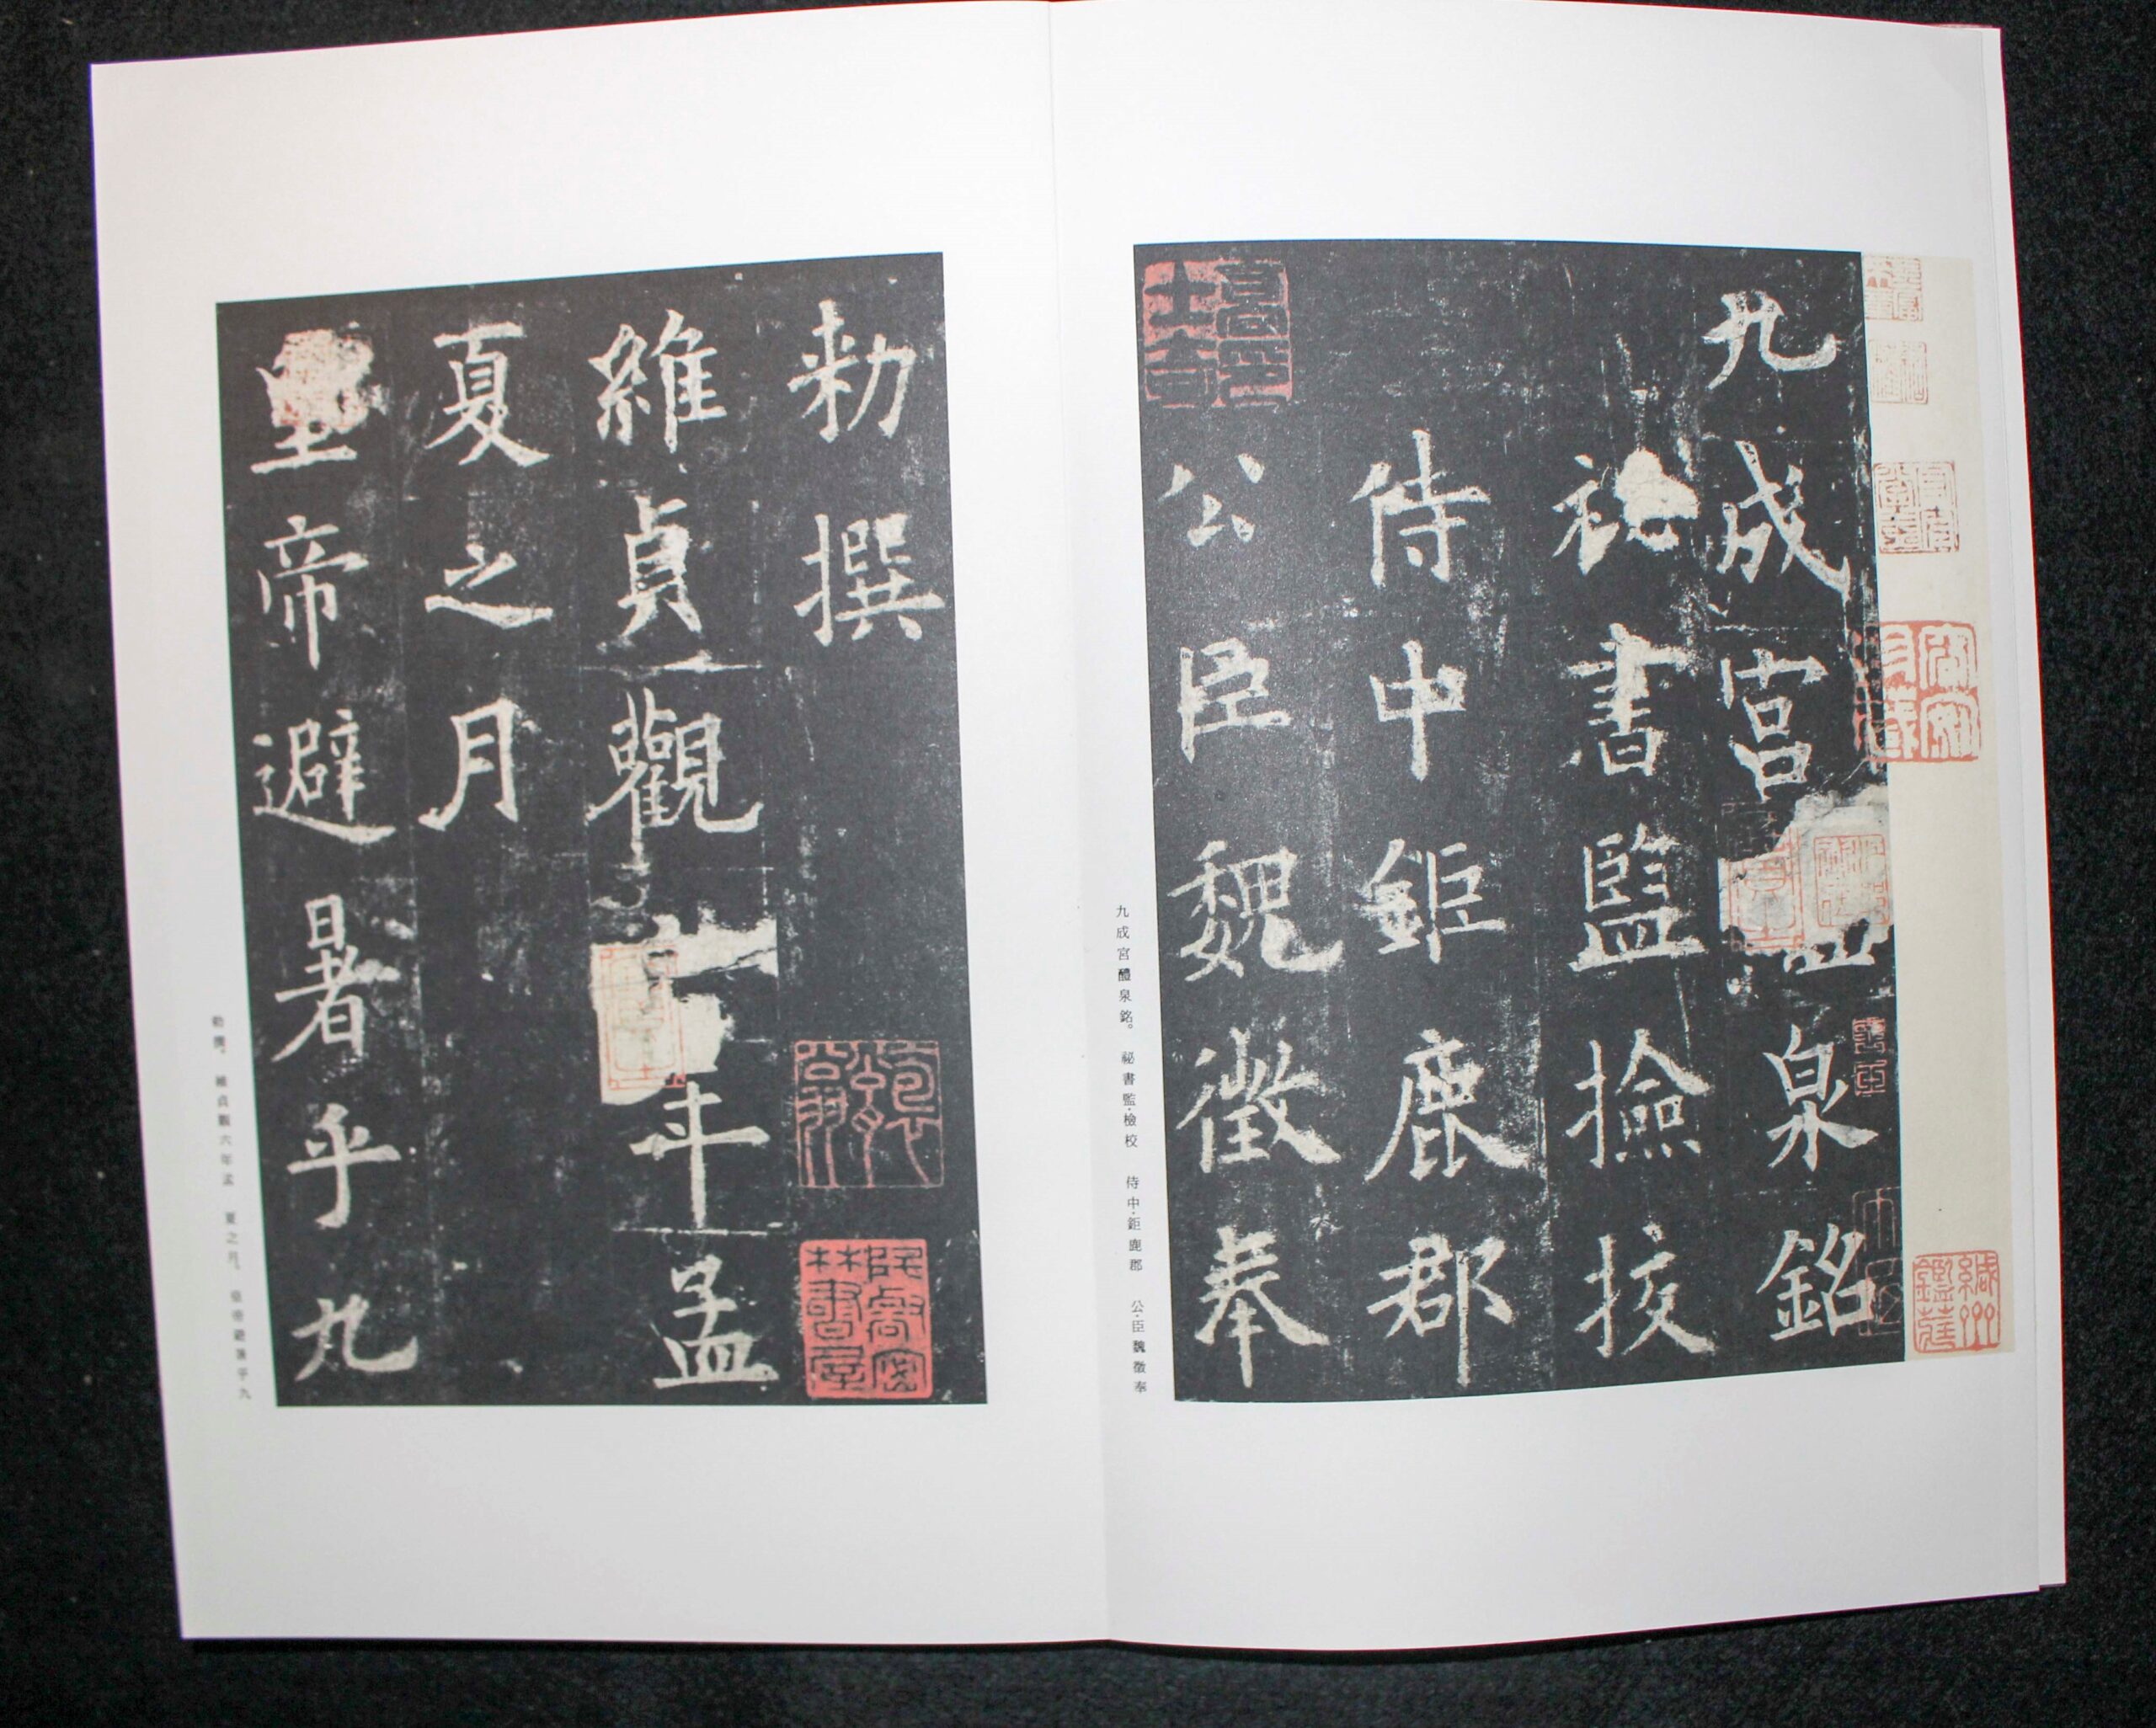 九成宮泉銘
祕書監撿挍
侍中鉅鹿郡
公臣魏徵奉
九成宮醴泉銘。 祕書監·檢校 侍中·鉅鹿郡 公·臣魏徵奉
勑撰
維貞觀年孟
夏之月
皇帝避暑乎九
勑撰。 維貞觀六年孟 夏之月。 皇帝避暑乎九